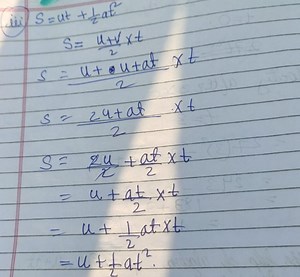 iii) S = ut + 1/2 at²
S = (u+v)/2 × t
S = (u + u + at)/2 × t
S = (2u + at)/2 × t
S = 2u/2 + at/2 × t
= u + at/2 × t
= u + 1/2 at × t
= u + 1/2 at².